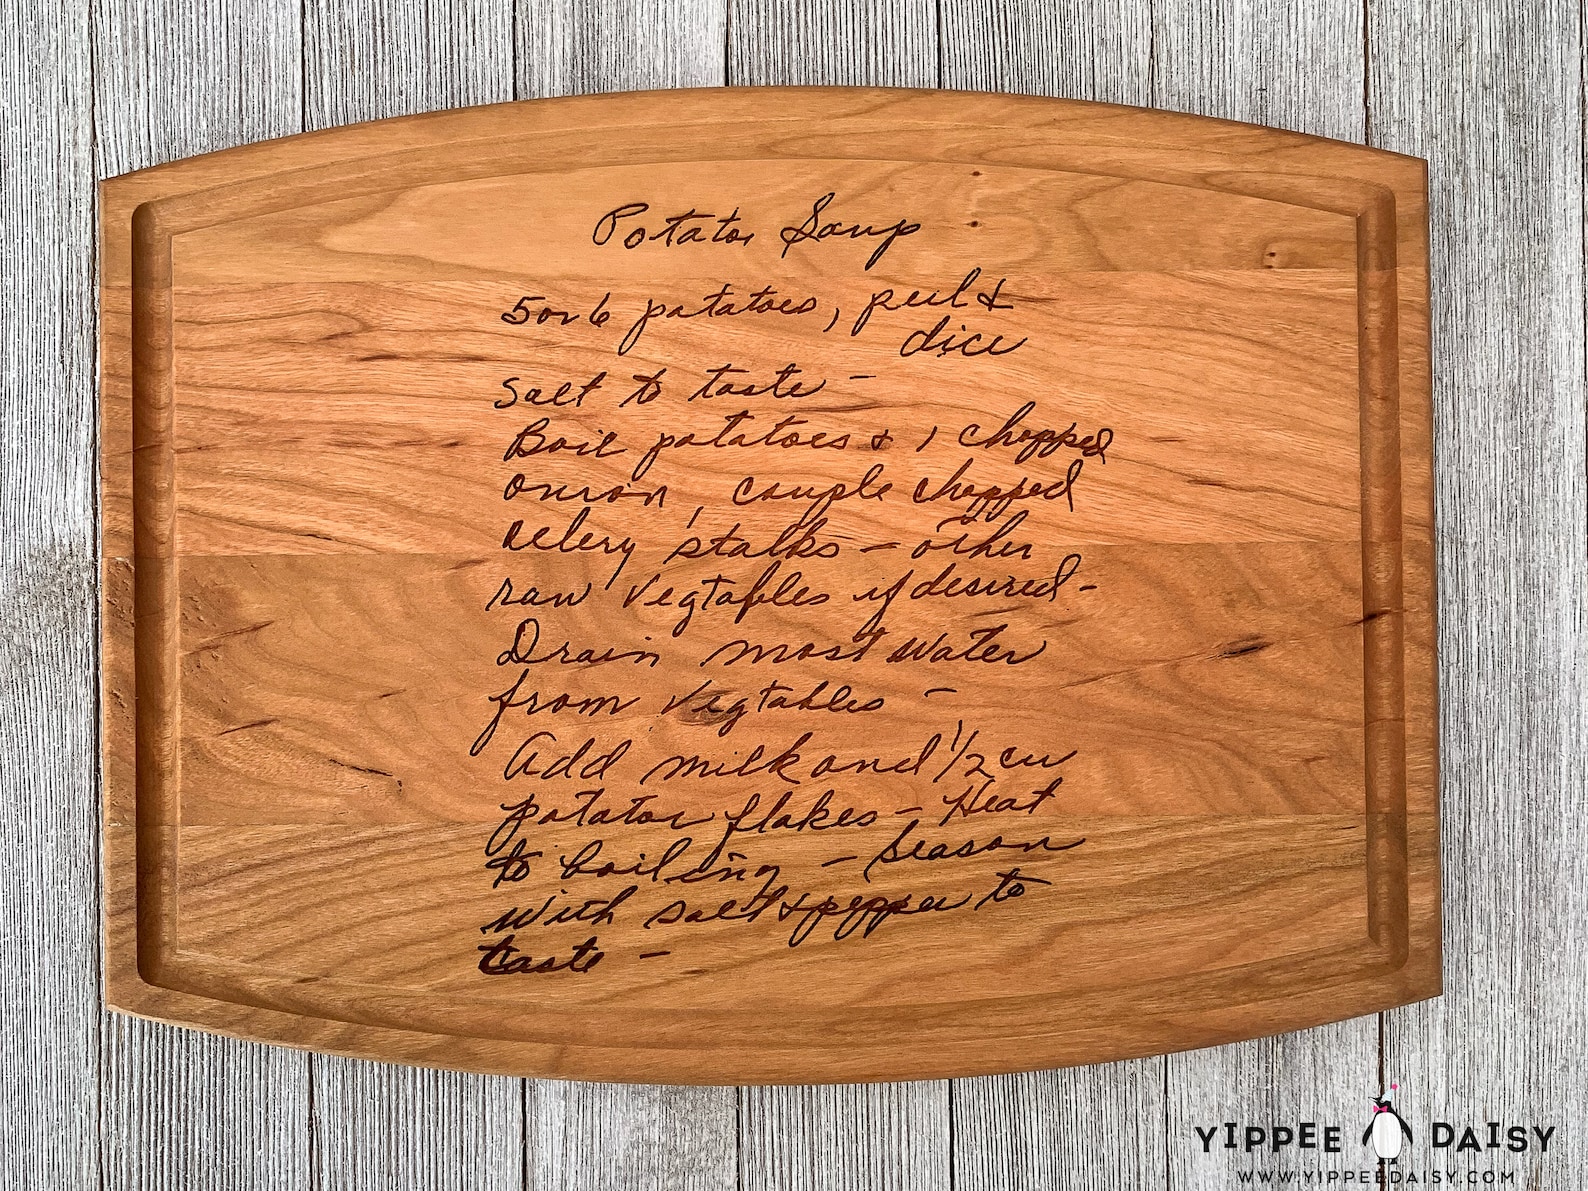 Potato Soup
5 or 6 potatoes, peel &
dice
Salt to taste -
Boil potatoes & 1 chopped
onion, couple chopped
celery stalks - other
raw vegtables if desired -
Drain most water
from vegtables -
Add milk and 1/2 cu
potato flakes - Heat
to boiling - Season
with salt & pepper to
taste -
YIPPEE DAISY
WWW.YIPPEEDAISY.COM